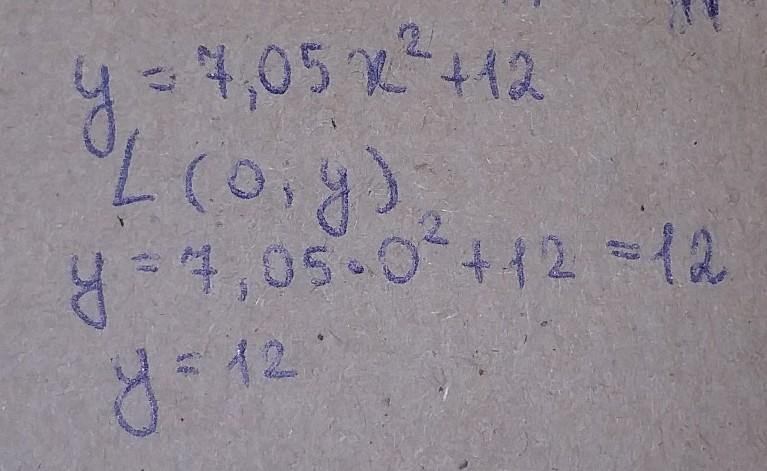 y = 7,05x²+12
L (0, y)
y = 7,05·0²+12 = 12
y = 12